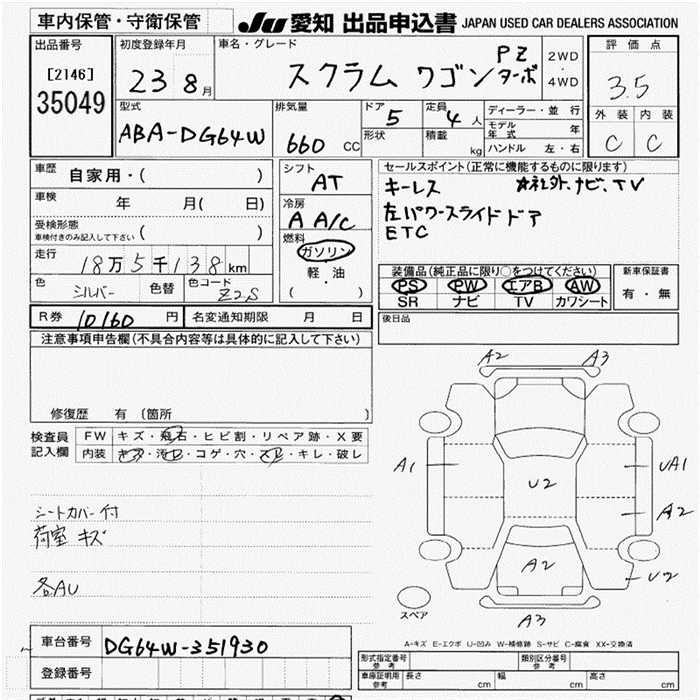 車内保管・守衛保管 JU 愛知 出品申込書 JAPAN USED CAR DEALERS ASSOCIATION
出品番号 [2146] 35049
初度登録年月 23 8月
車名・グレード スクラム ワゴン PZ ターボ
2WD ・ 4WD
評価点 3.5
外装 内装
C C
型式 ABA-DG64W
排気量 660 CC
ドア 5 定員 4人
形状 積載 kg
ディーラー・並行
モデル年式 年
ハンドル 左・右
車歴 自家用・( )
車検 年 月( 日)
受検形態 車検付きのみ記入して下さい ( )
走行 18万5千138km
色 シルバー 色替 色コード Z2S
シフト AT
冷房 A A/C
燃料 ガソリン
軽・油
( )
セールスポイント(正常に機能するものに限ります)
キーレス 社外.ナビ、TV
左パワースライドドア
ETC
装備品(純正品に限り○をつけてください)
PS PW エアB AW
SR ナビ TV カワシート
新車保証書
有・無
R券 10160 円 名変通知期限 月 日
後日品
注意事項申告欄(不具合内容等は具体的に記入して下さい)
修復歴 有 〔箇所 〕
検査員記入欄
FW キズ・飛石・ヒビ割・リペア跡・X要
内装 キズ・汚れ・コゲ・穴・スレ・キレ・破レ
シートカバー付
荷室 キズ
各AU
A2 A3
A1 U2 UA1
A2
A2 U2
A3
スペア
A-キズ E-エクボ U-凹み W-補修跡 S-サビ C-腐食 XX-交換済
車台番号 DG64W-351930
登録番号
形式指定番号 参考 類別区分番号 参考
車庫証明用 参考 長さ cm 幅 cm 高さ cm